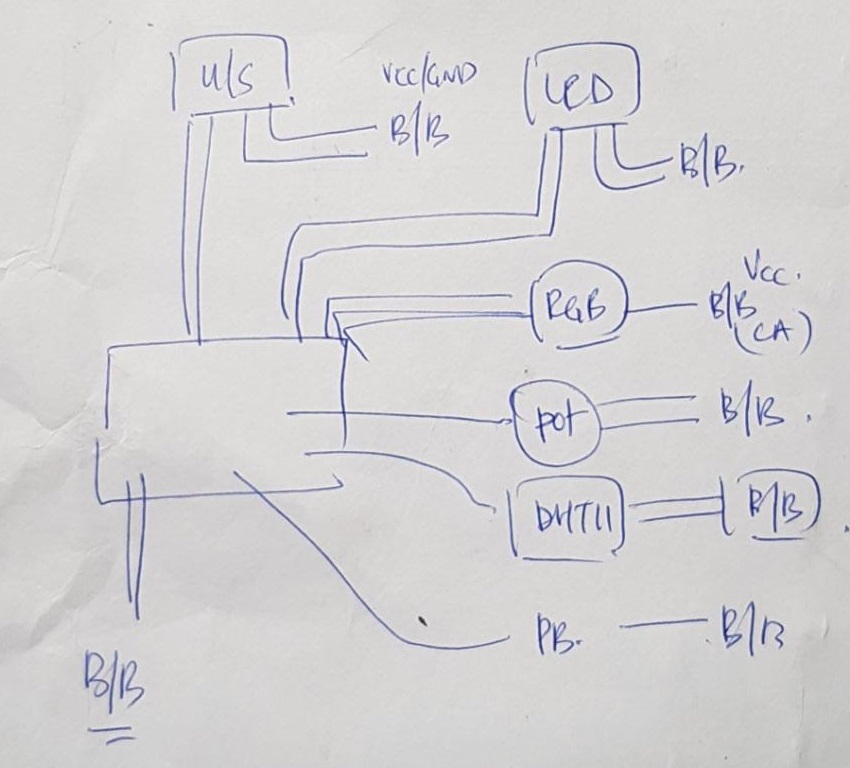 U/S
VCC/GND
B/B
LED
B/B.
RGB
Vcc.
B/B
(CA)
pot
B/B.
DHT11
B/B
PB.
B/B
B/B